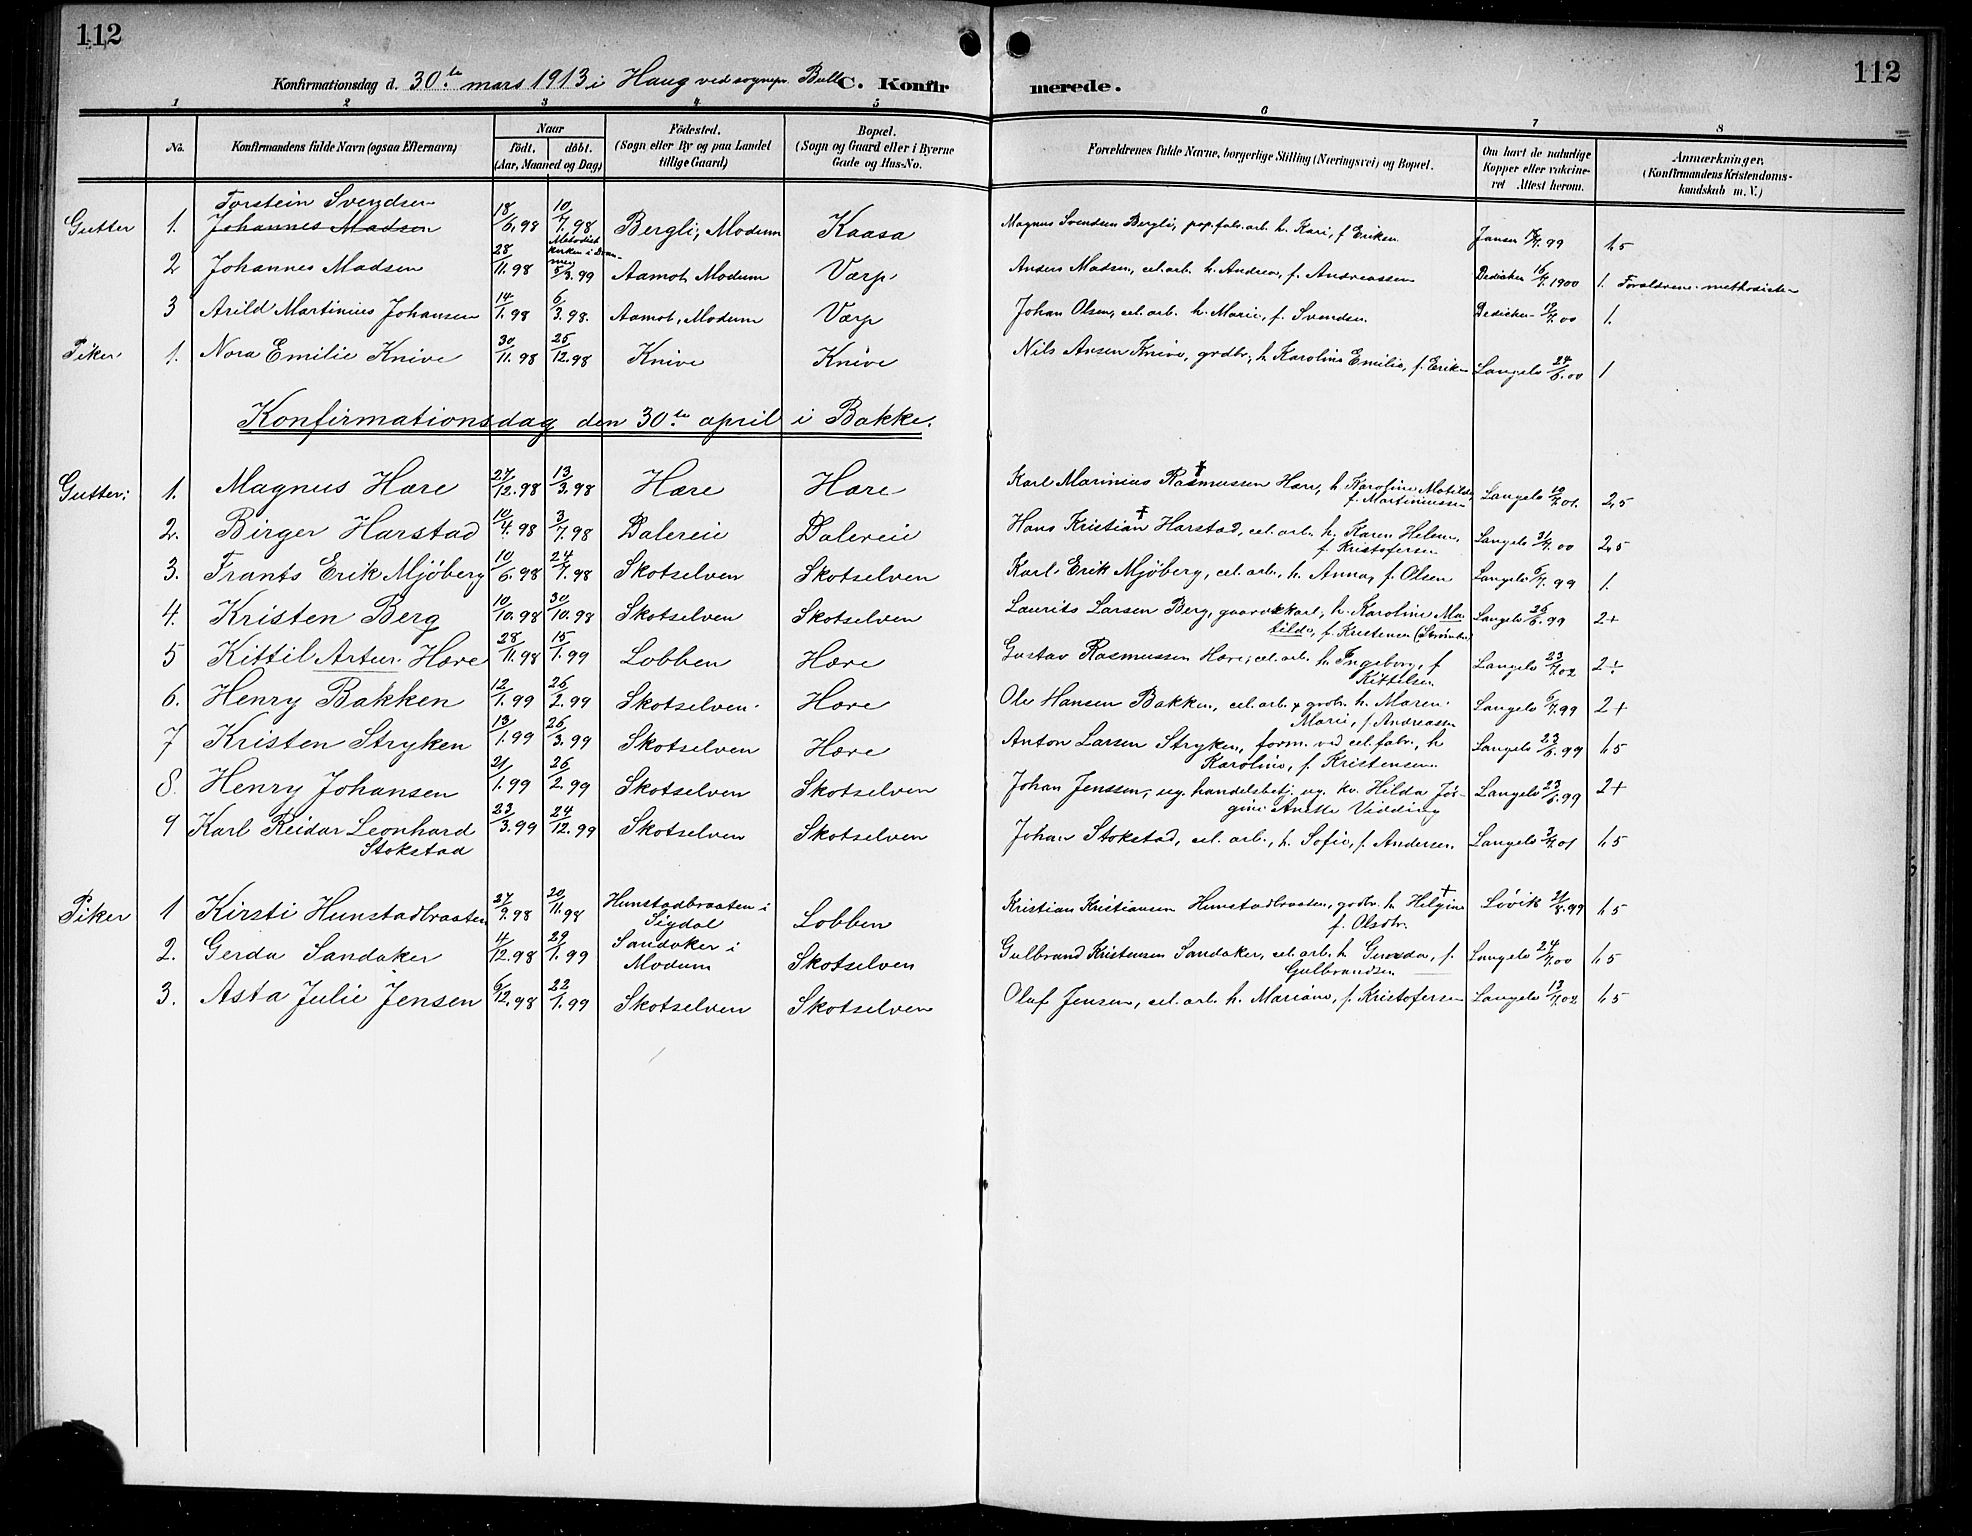 112
112
Konfirmationsdag d. 30.te mars 1913 i Haug ved sognepr. Bull
C. Konfirmerede.
1 2 3 4 5 6 7 8
No.
Konfirmandens fulde Navn (ogsaa Efternavn)
Naar
født, døbt.
(Aar, Maaned og Dag)
Födested.
(Sogn eller By og paa Landet
tillige Gaard)
Bopæl.
(Sogn og Gaard eller i Byerne
Gade og Hus-No.
Forældrenes fulde Navne, borgerlige Stilling (Næringsvei) og Bopæl.
Om havt de naturlige
Kopper eller vakcine-
ret Attest herom.
Anmærkninger.
(Konfirmandens Kristendoms-
kundskab m. V.)
Torstein Svendsen
Gutter 1. Johannes Madsen 18/6.98 10/7.98 Bergli, Modum Kaasa Magnus Svendsen Bergli, pap.fabr.arb. h. Kari, f Eriksen Jansen 99 1,5
2 Johannes Madsen 28/11.98 Metodist kirken i Drammen 5/3.99 Aamot, Modum Værp Anders Madsen, cel.arb. h. Andrea, f. Andreassen Dedichen 16/7.1900 1. Forældrene methodister
3 Arild Martinius Johansen 14/1.98 6/3.98. Aamot, Modum Værp Johan Olsen, cel.arb. h. Marie, f. Svendsen Dedichen 00 1.
Piker 1. Nora Emilie Knive 30/11.98 25/12.98 Knive Knive Nils Ansen Knive, grdbr., h Karoline Emilie, f. Eriksen Langels 24/6.00 1
Konfirmationsdag den 30.te april i Bakke.
Gutter: 1. Magnus Hære 27/12.98 13/3.98 Hære Hære Karl Marinius Rasmussen † Hære, h. Karoline Matilde
f. Martiniussen Langels 01. 2,5
2. Birger Harstad 10/4.98 3/7.98 Dalereie Dalereie Hans Kristian † Harstad, cel. arb. h. Karen Helene,
f Kristofersen Langels 31/7.00 2,5
3. Frants Erik Mjöberg 10/6.98 24/7.98 Skotselven Skotselven Karl Erik Mjöberg, cel. arb., h. Anna, f. Olsen Langels 99 1.
4. Kristen Berg 10/10.98 30/10.98 Skotselven Skotselven Laurits Larsen Berg, gaardskarl, h. Karoline Ma-
tilde, f. Kristensen Langels 99 2+
5 Kittil Artur Hære 28/11.98 15/1.99 Lobben Hære Gustav Rasmussen Hære, cel. arb. h. Ingeborg, f
Kittelsen Langels 23/7.02 2÷
6. Henry Bakken 12/1.99 26/2.99 Skotselven Hære Ole Hansen Bakken, cel. arb. & grdbr. h. Maren
Marie, f. Andreassen Langels 99 2+
7 Kristen Stryken 13/1.99 26/3.99 Skotselven Hære Anton Larsen Stryken, form. ved cel. fabr., h
Karoline, f. Kristensen Langels 23/6.99 1,5
8. Henry Johansen 21/1.99 26/2.99 Skotselven Skotselven Johan Jenssen, ug. handelsbetj. ug. kv. Hilda Jör-
gine Anette Vidding Langels 23/6.99 2+
9 Karl Reidar Leonhard
Stokstad 23/3.99 24/12.99 Skotselven Skotselven Johan Stokstad, cel. arb., h. Sofie, f. Andersen. Langels 01 1,5
Piker 1 Kirsti Hunstadbraaten 27/9.98 20/11.98 Hunstadbraaten i
Sigdal Lobben Kristian Kristiansen Hunstadbraaten, grdbr. h Helgine †
f. Olsdtr. Lövik 21/8.99 1,5
2. Gerda Sandaker 4/12.98 29/1.99 Sandaker i
Modum Skotselven Gulbrand Kristensen Sandaker, cel. arb. h Gunda, f.
Gulbrandsen Langels 24/7.00 1,5
3. Asta Julie Jensen 6/12.98 22/1.99 Skotselven Skotselven Olaf Jensen, cel. arb. h. Mariane, f. Kristofersen Langels 13/7.02 1,5